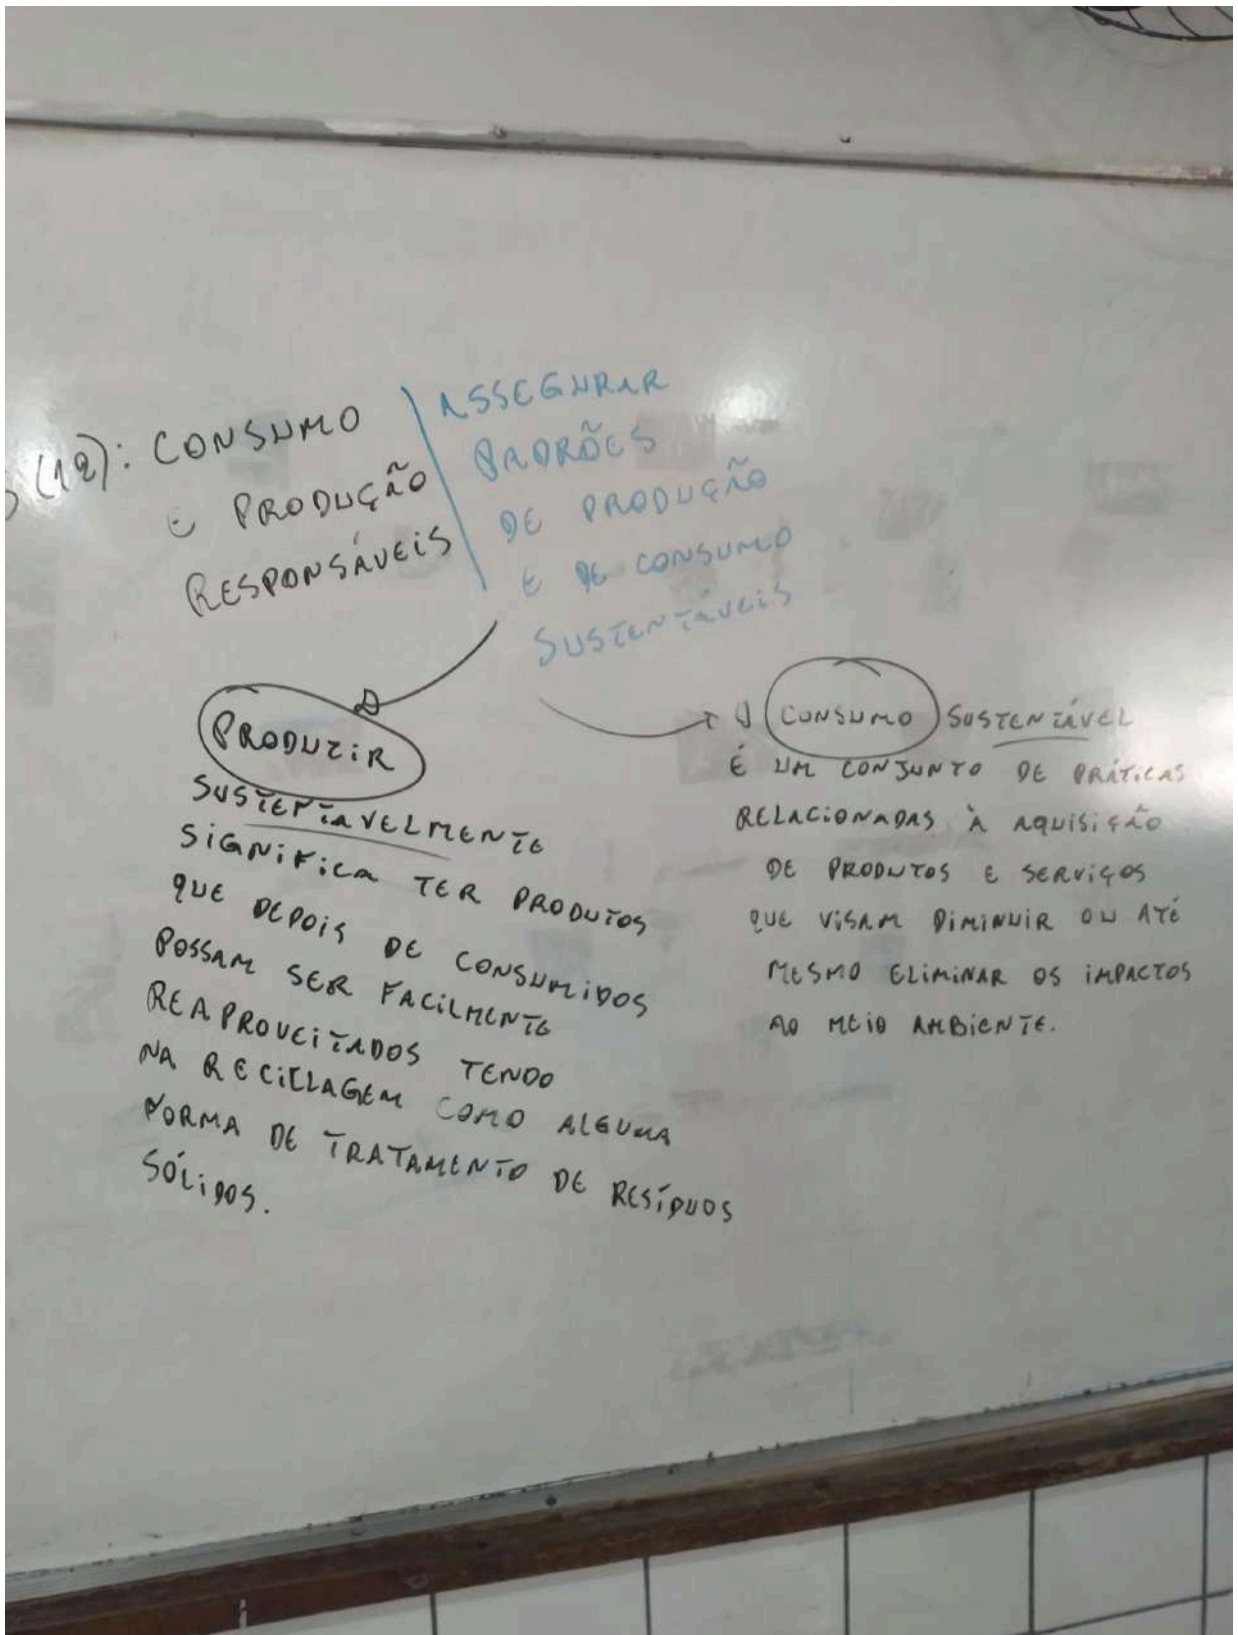 (12): CONSUMO
E PRODUÇÃO
RESPONSÁVEIS
ASSEGURAR
PADRÕES
DE PRODUÇÃO
E DE CONSUMO
SUSTENTÁVEIS
PRODUZIR
SUSTENTAVELMENTE
SIGNIFICA TER PRODUTOS
QUE DEPOIS DE CONSUMIDOS
POSSAM SER FACILMENTE
REAPROVEITADOS TENDO
NA RECICLAGEM COMO ALGUMA
FORMA DE TRATAMENTO DE RESÍDUOS
SÓLIDOS.
O CONSUMO SUSTENTÁVEL
É UM CONJUNTO DE PRÁTICAS
RELACIONADAS À AQUISIÇÃO
DE PRODUTOS E SERVIÇOS
QUE VISAM DIMINUIR OU ATÉ
MESMO ELIMINAR OS IMPACTOS
AO MEIO AMBIENTE.